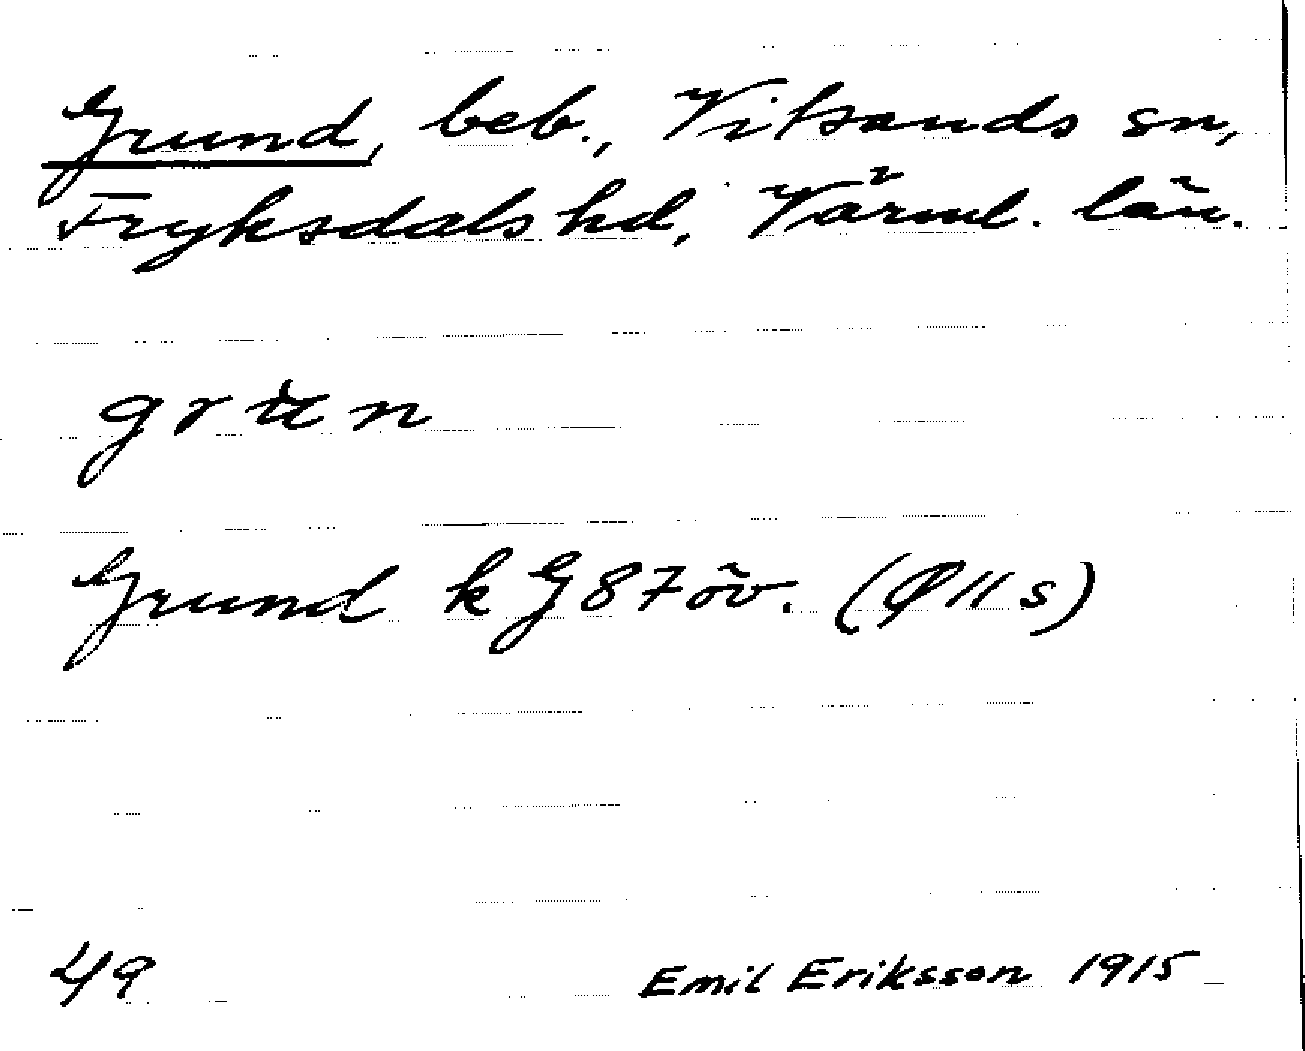 Grund, beb., Vitsands sn,
Fryksdals hd, Värml. län.
grun
Grund k G 87 öv. (Ø 11 s)
49
Emil Eriksson 1915